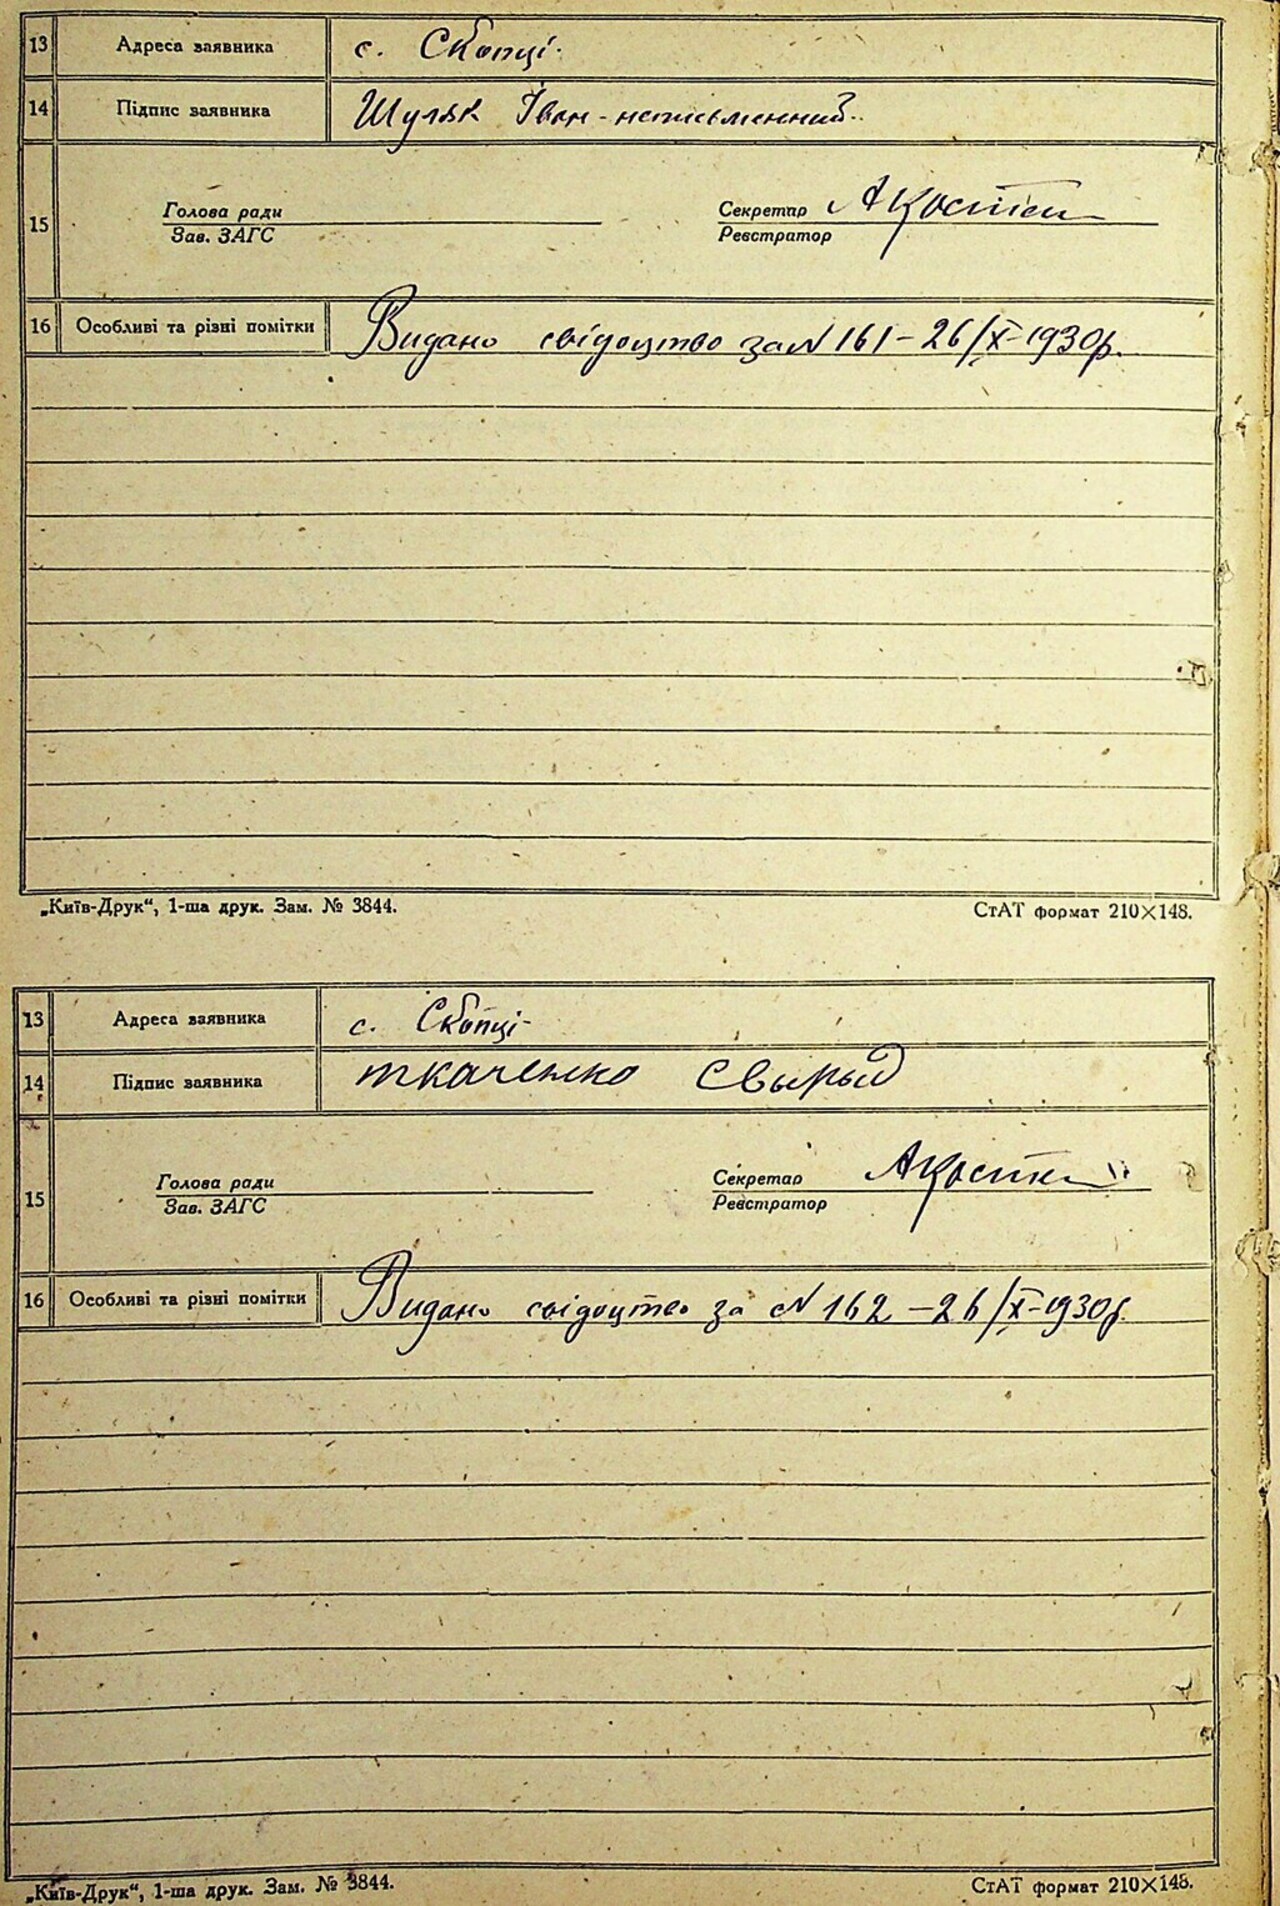 13 Адреса заявника с. Скопці.
14 Підпис заявника Шуляк Іван - неписьменний.
15 Голова ради Секретар
Зав. ЗАГС Реєстратор
16 Особливі та різні помітки Видано свідоцтво за N 161 - 26/X - 1930р.
„Київ-Друк“, 1-ша друк. Зам. № 3844. СтАТ формат 210×148.
13 Адреса заявника с. Скопці
14 Підпис заявника ткаченко Свырыд
15 Голова ради Секретар
Зав. ЗАГС Реєстратор
16 Особливі та різні помітки Видано свідоцтво за N 162 - 26/X - 1930р.
„Київ-Друк“, 1-ша друк. Зам. № 3844. СтАТ формат 210×148.